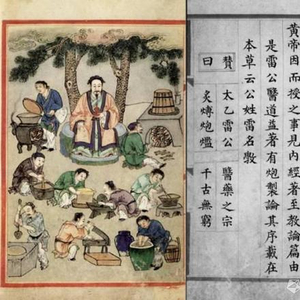 黃帝因而授之事見內經著至教論篇由
是雷公醫道益著有炮製論其序載在
本草云公姓雷名斆
贊曰
太乙雷公 醫藥之宗
炙煿炮爁 千古無窮